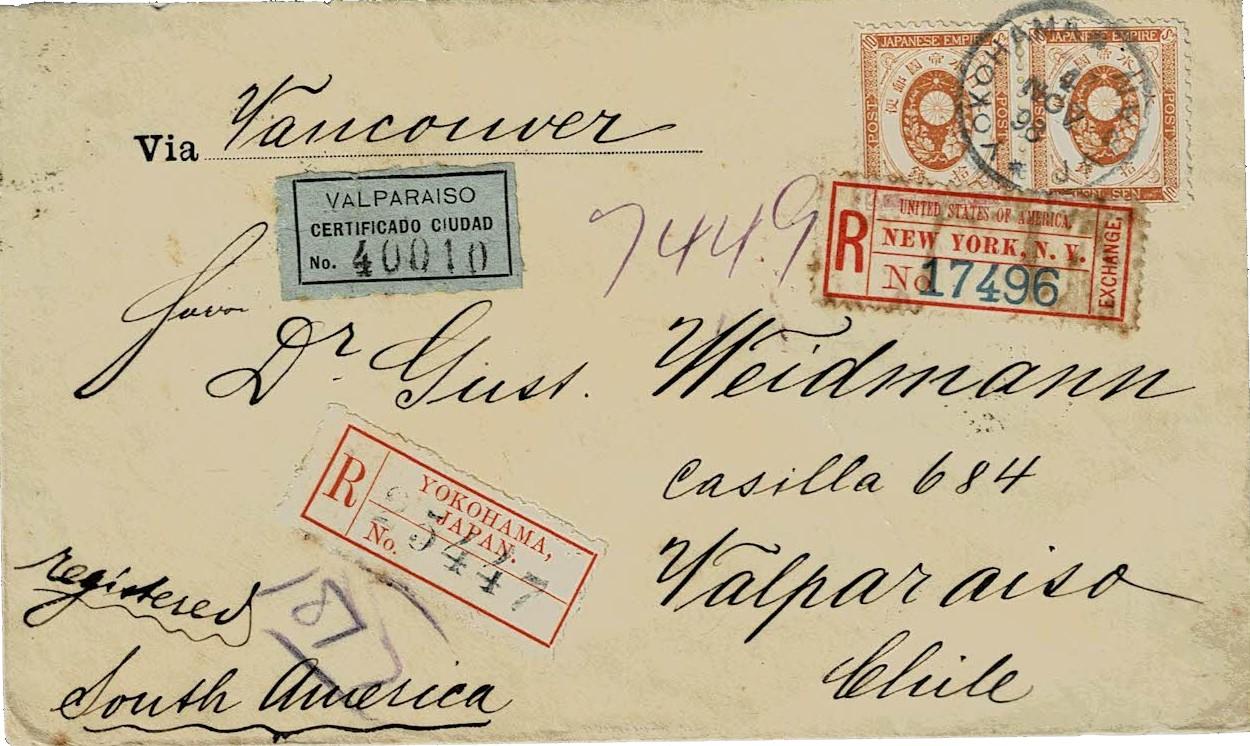 JAPANESE EMPIRE
JAPANESE EMPIRE
大日本帝国郵便
POST
POST
拾銭
SEN
YOKOHAMA
NOV
98
JAPAN
Via Vancouver
VALPARAISO
CERTIFICADO CIUDAD
No. 40010
7449
R
UNITED STATES OF AMERICA.
NEW YORK, N. Y.
No 17496
EXCHANGE
Herrn
Dr Gust. Weidmann
Casilla 684
Valparaiso
Chile
R
YOKOHAMA,
JAPAN.
No.
447
registered
South America